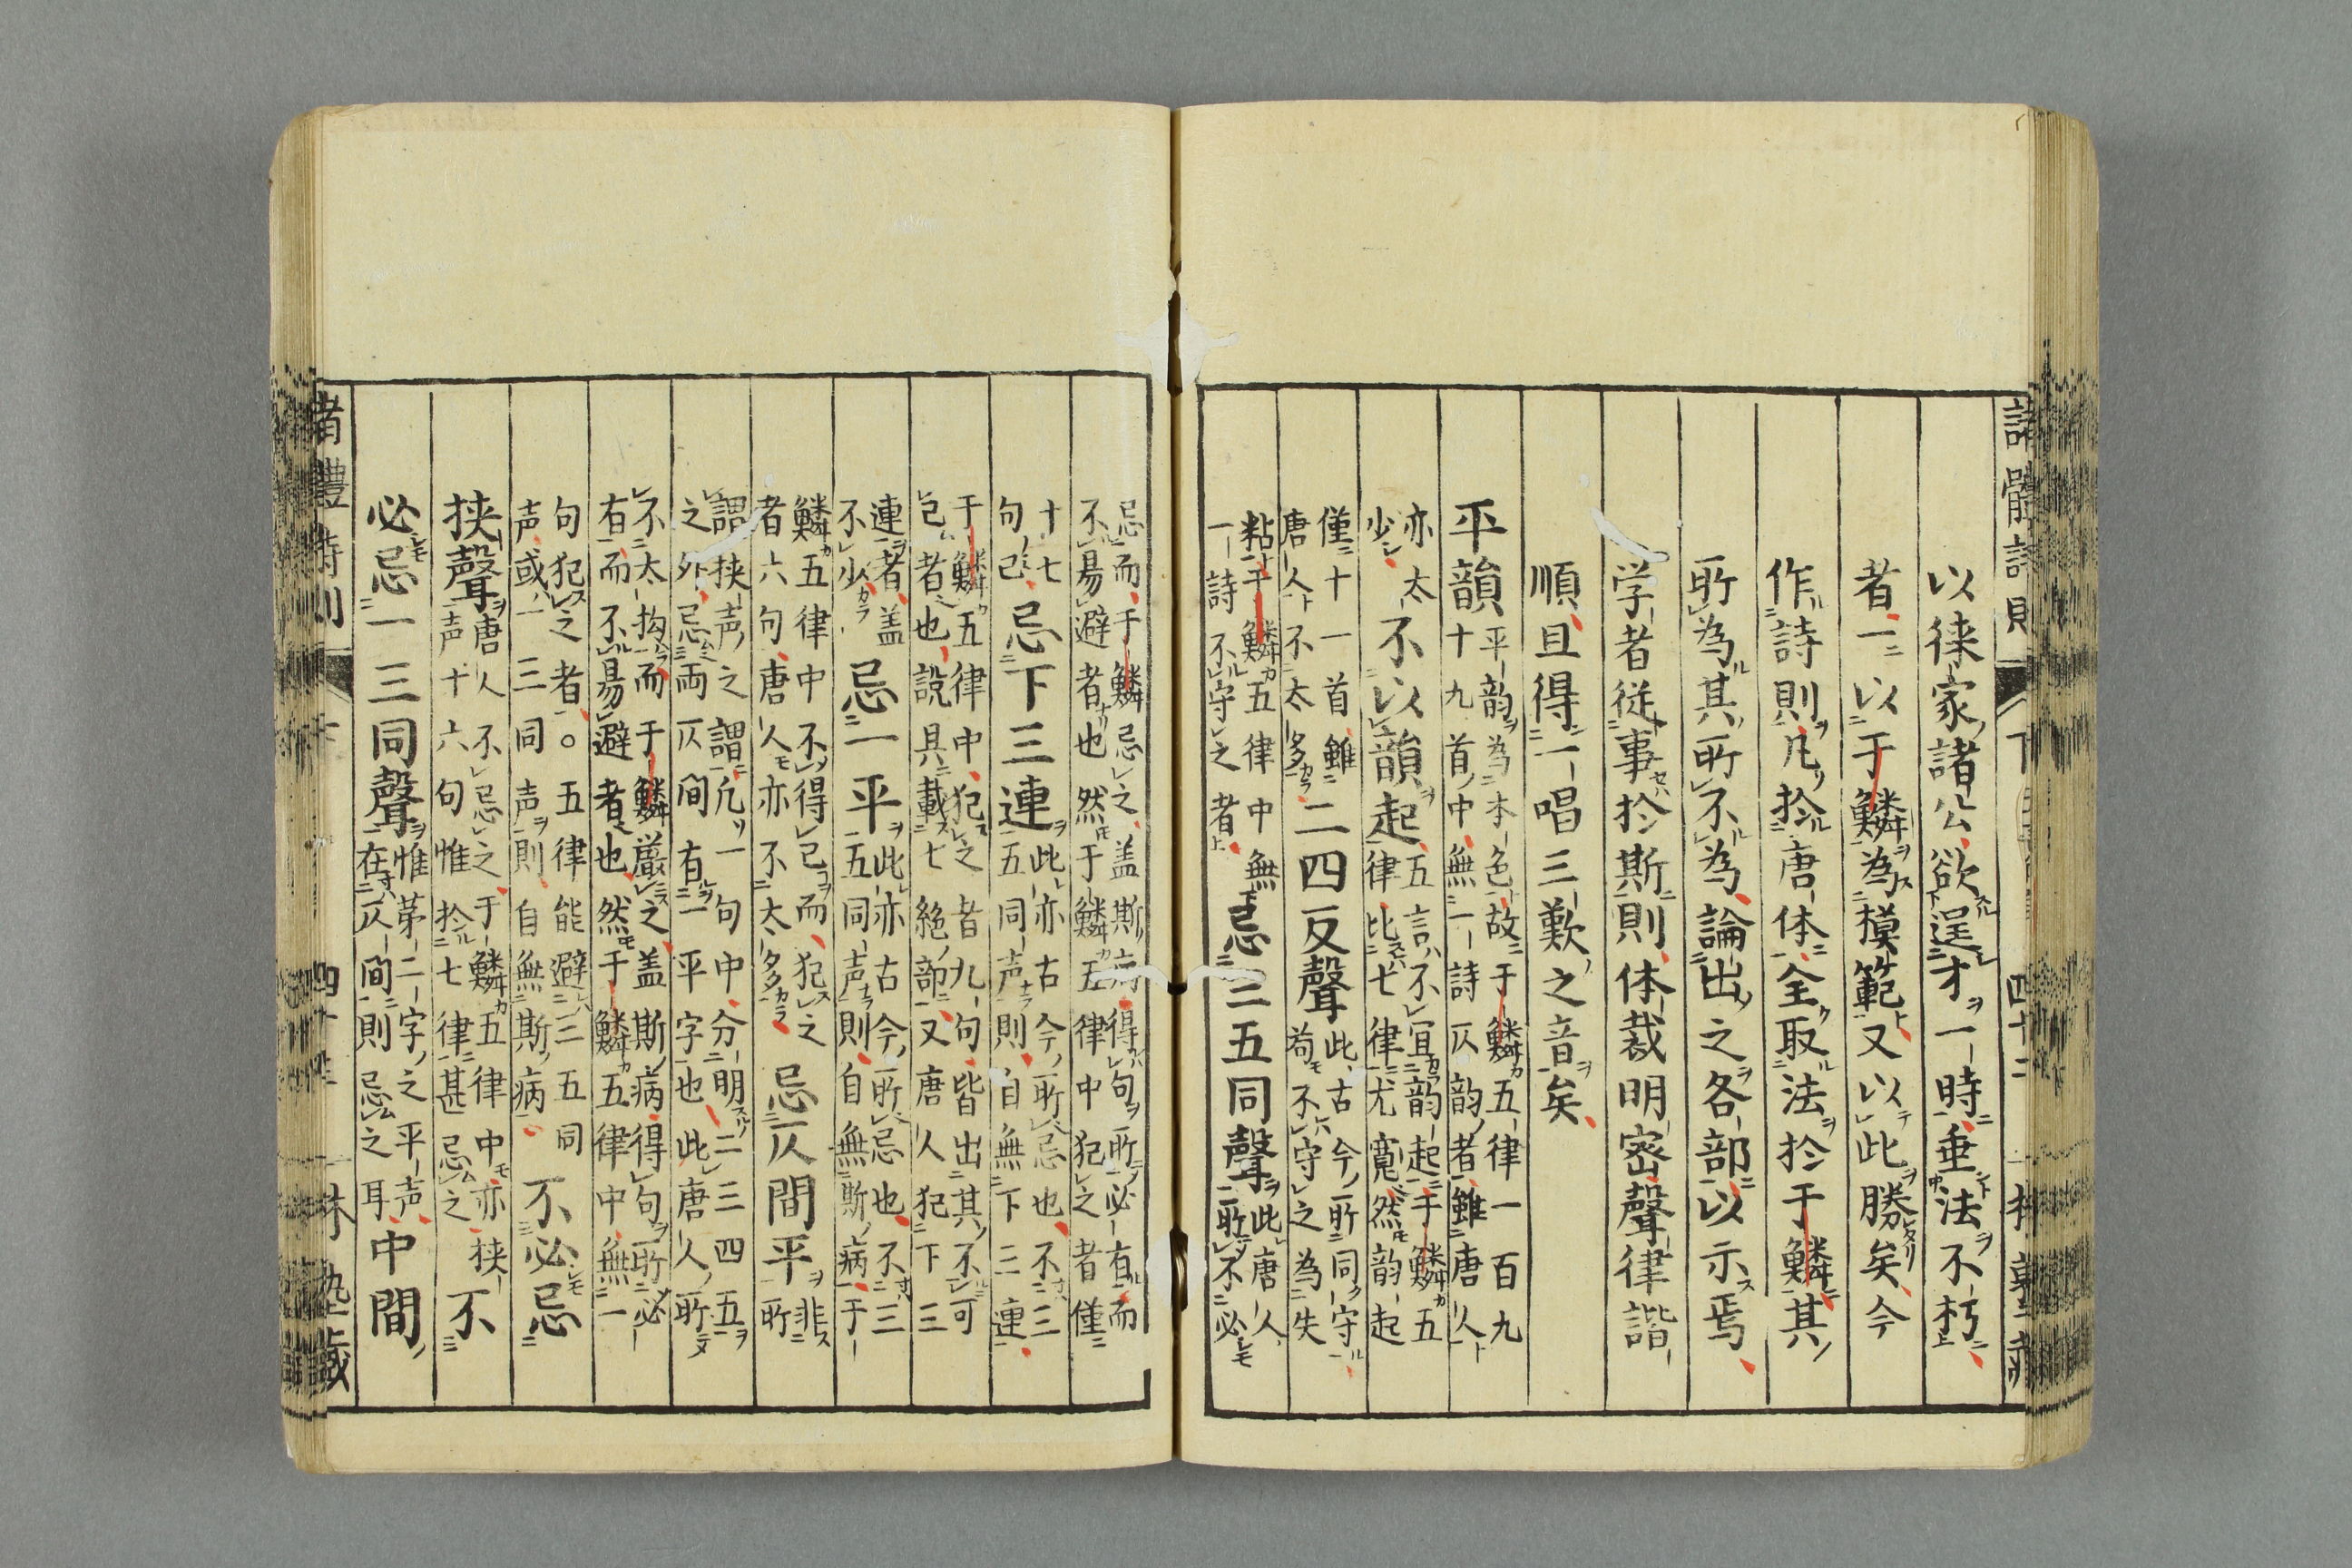 以徠家諸公欲逞才一時垂法不朽
者一以于鱗為模範又以此勝矣今
作詩則凡於唐体全取法於于鱗其
所為其所不為論出之各部以示焉
学者従事於斯則体裁明密聲律諧
順且得一唱三歎之音矣
平韻
平韵為本色故于鱗五律一百九
十九首中無一詩仄韵者雖唐人
亦太
少
不以韻起
五言不宜韵起于鱗五
律比七律尤寬然韵起
僅十一首雖
唐人不太多
二四反聲
此古今所同守
苟不守之為失
粘于鱗五律中無
一詩不守之者
忌二五同聲
此唐人
所不必
忌而于鱗忌之盖斯病得句所必有而
不易避者也然于鱗五律中犯之者僅
十七
句已
忌下三連
此亦古今所忌也不三
五同声則自無下三連
于鱗五律中犯之者九句皆出其不可
已者也説具載七絶部又唐人犯下三
連者盖
不少
忌一平
此亦古今所忌也不三
五同声則自無斯病于
鱗五律中不得已而犯之
者六句唐人亦不太多
忌仄間平
非
所
謂挟声之謂凡一句中分明二三四五
之外忌両仄間有一平字也此唐人所
不太拘而于鱗厳之盖斯病得句所必
有而不易避者也然于鱗五律中無一
句犯之者○五律能避三五同
声或一三同声則自無斯病
不必忌
挟聲
唐人不忌之于鱗五律中亦挟
声十六句惟於七律甚忌之
不
必忌一三同聲
惟茅二字之平声
在仄間則忌之耳
中間